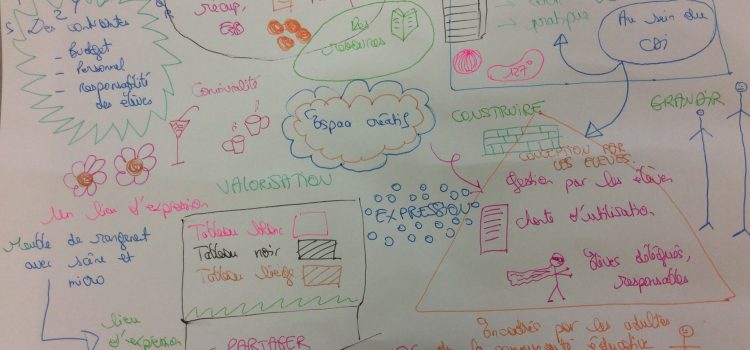 Des contraintes
- Budget
- Personnel
- Responsabilité
des élèves
récup,
Des
ressources
pratique
127°
Au sein du
CDI
Convivialité
Espace créatif
CONSTRUIRE
GRANDIR
CONCEPTION PAR
LES ÉLÈVES
Gestion par les élèves
charte d'utilisation
Élèves délégués,
responsables
VALORISATION
EXPRESSION
Un lieu d'expression
Meuble de rangement
avec scène et
micro
lieu
d'expression
Tableau blanc
Tableau noir
Tableau liège
PARTAGER
Encadrés par les adultes
de la communauté éducative